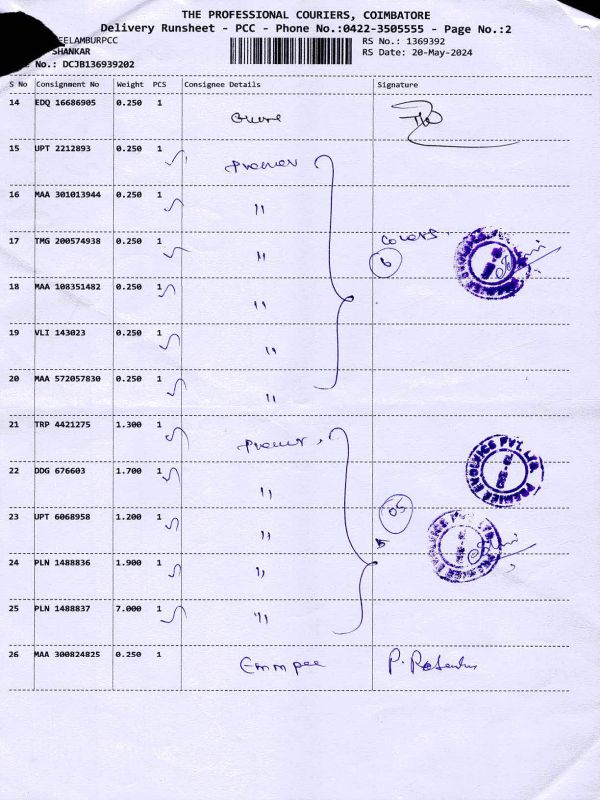 THE PROFESSIONAL COURIERS, COIMBATORE
Delivery Runsheet - PCC - Phone No.:0422-3505555 - Page No.:2
EELAMBURPCC
RS No.: 1369392
SHANKAR
RS Date: 20-May-2024
No.: DCJB136939202
S No Consignment No Weight PCS Consignee Details Signature
14 EDQ 16686905 0.250 1
15 UPT 2212893 0.250 1 Premier
16 MAA 301013944 0.250 1 "
17 TMG 200574938 0.250 1 " Covers 6
18 MAA 108351482 0.250 1 "
19 VLI 143023 0.250 1 "
20 MAA 572057830 0.250 1 "
21 TRP 4421275 1.300 1 Premier
22 DDG 676603 1.700 1 " PREMIER EVOLVICS PVT LTD.
23 UPT 6068958 1.200 1 " 05
24 PLN 1488836 1.900 1 "
25 PLN 1488837 7.000 1 "
26 MAA 300824825 0.250 1 Emmpee